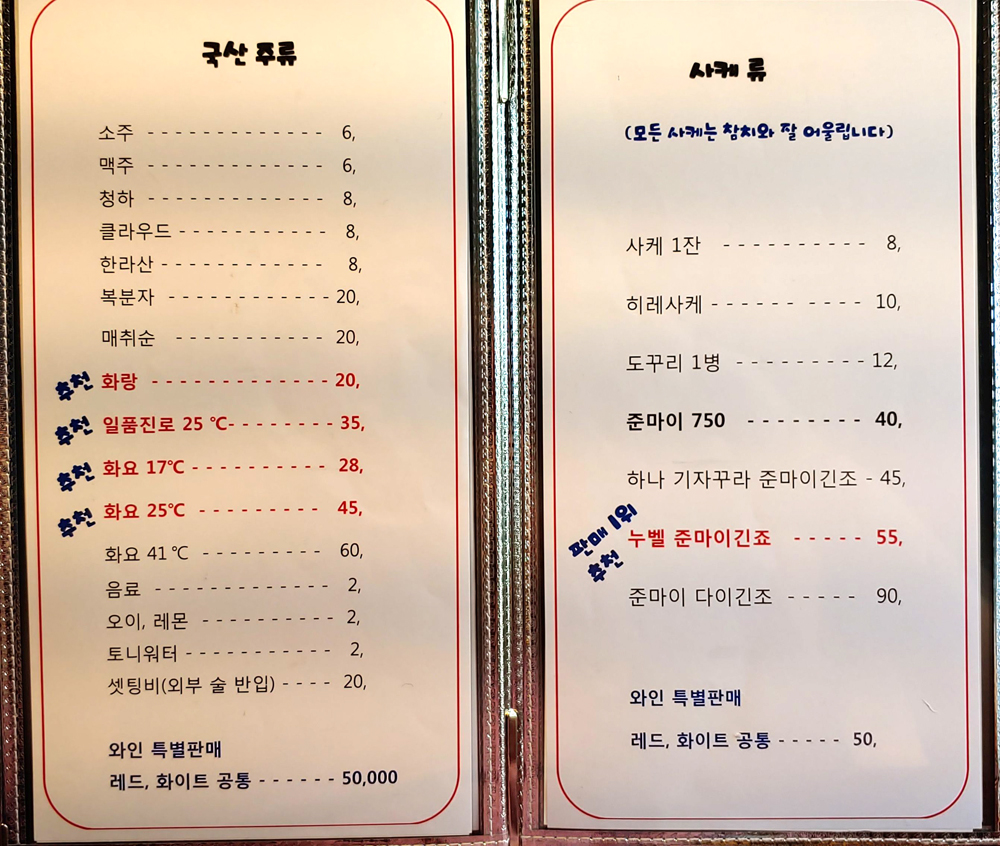 국산 주류
소주 - - - - - - - - - - - - - 6,
맥주 - - - - - - - - - - - - - 6,
청하 - - - - - - - - - - - - - 8,
클라우드 - - - - - - - - - - - 8,
한라산 - - - - - - - - - - - - 8,
복분자 - - - - - - - - - - - - 20,
매취순 - - - - - - - - - - - 20,
추천 화랑 - - - - - - - - - - - - - 20,
추천 일품진로 25 ℃- - - - - - - - 35,
추천 화요 17℃ - - - - - - - - - - 28,
추천 화요 25℃ - - - - - - - - - 45,
화요 41℃ - - - - - - - - - 60,
음료 - - - - - - - - - - - - 2,
오이, 레몬 - - - - - - - - - - 2,
토니워터 - - - - - - - - - - - 2,
셋팅비(외부 술 반입) - - - - 20,
와인 특별판매
레드, 화이트 공통 - - - - - - 50,000
사케 류
(모든 사케는 참치와 잘 어울립니다)
사케 1잔 - - - - - - - - - - 8,
히레사케 - - - - - - - - - - 10,
도꾸리 1병 - - - - - - - - - 12,
준마이 750 - - - - - - - - 40,
하나 기자꾸라 준마이긴조 - 45,
판매 1위
추천
누벨 준마이긴죠 - - - - - 55,
준마이 다이긴조 - - - - - 90,
와인 특별판매
레드, 화이트 공통 - - - - - 50,